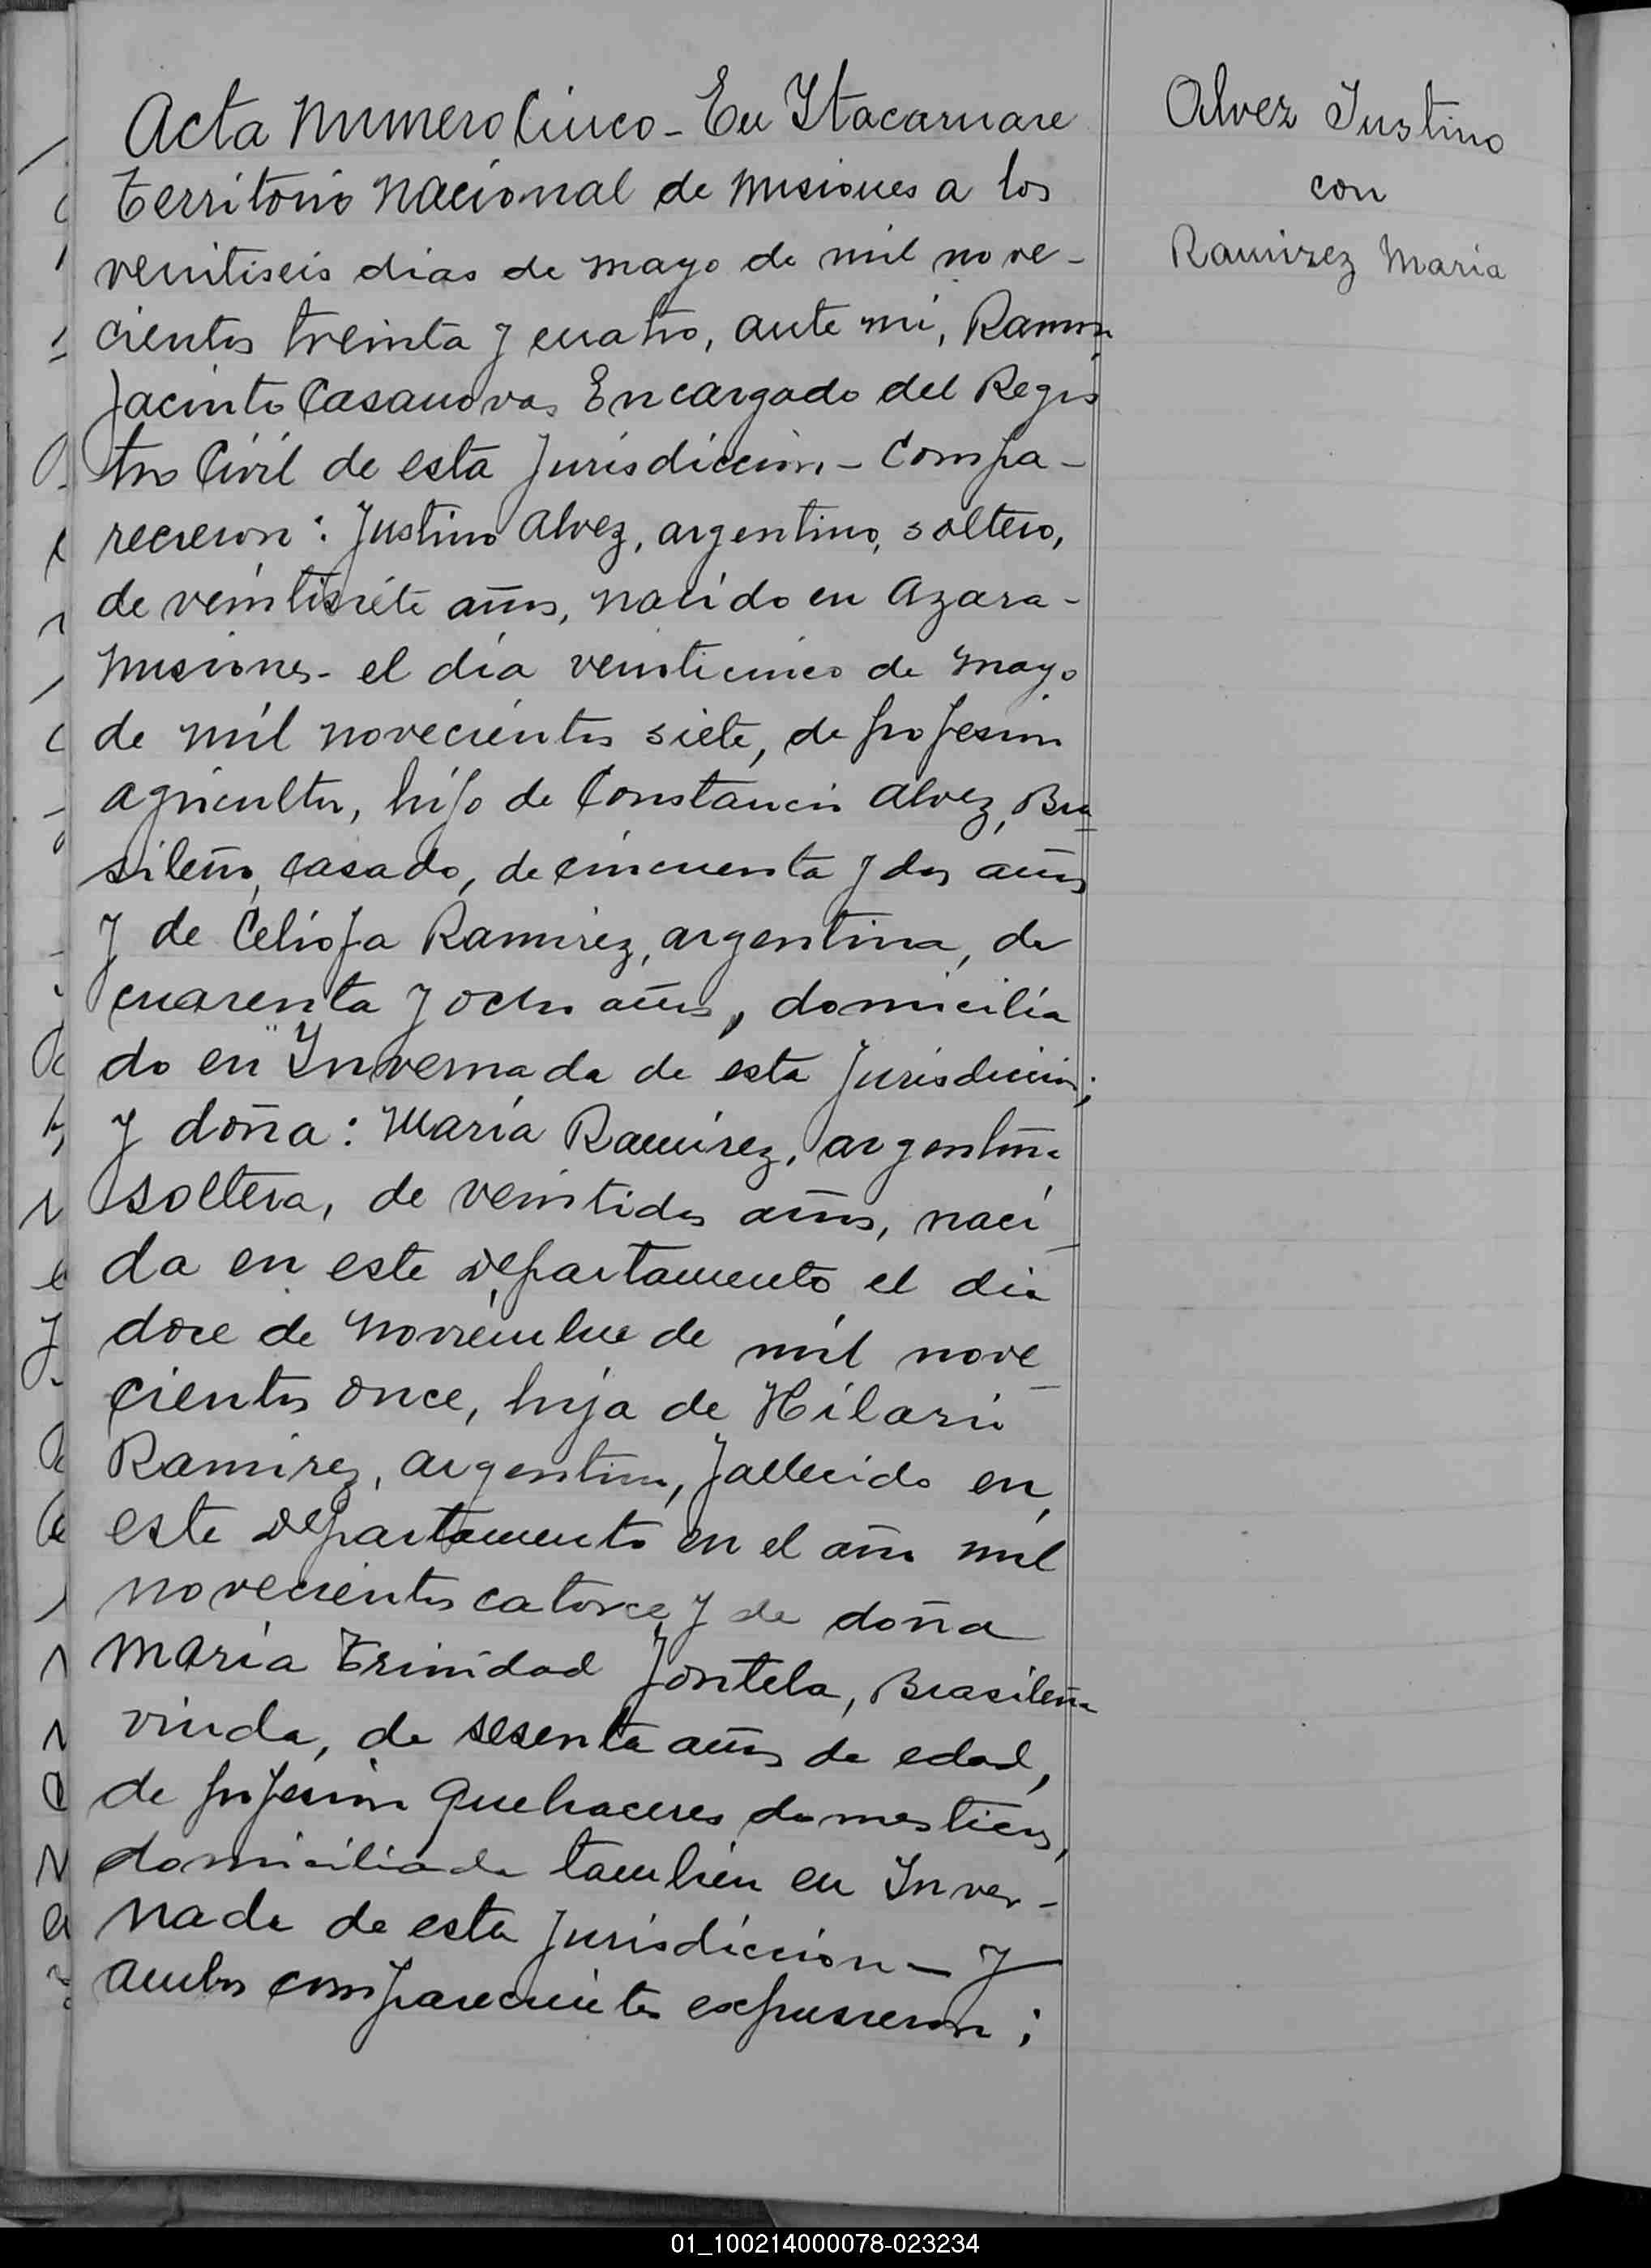 Acta Numero Cinco - En Itacaruare
Territorio Nacional de Misiones a los
veintiseis dias de mayo de mil nove-
cientos treinta y cuatro, ante mi, Ramon
Jacinto Casanovas Encargado del Regis
tro Civil de esta Jurisdiccion - Compa-
recieron: Justino Alvez, argentino, soltero,
de veintisiete años, nacido en Azara -
Misiones - el día veinticinco de mayo
de mil novecientos siete, de profesion
agricultor, hijo de Constancio Alvez, Bra
sileño, casado, de cincuenta y dos años
y de Ramirez, argentina, de
cuarenta y ocho años, domicilia
do en Invernada de esta Jurisdiccion;
y doña: María Ramirez, argentina
soltera, de veintidos años, naci
da en este Departamento el dia
doce de Noviembre de mil nove
cientos once, hija de Hilario
Ramirez, argentino, fallecido en
este Departamento en el año mil
novecientos catorce y de doña
María Trinidad Jontela, Brasileña
viuda, de sesenta años de edad,
de profesion Quehaceres domesticos,
domiciliada tambien en Inver-
nada de esta Jurisdiccion - y
ambos comparecientes expusieron:
Alvez Justino
con
Ramirez Maria
01_100214000078-023234